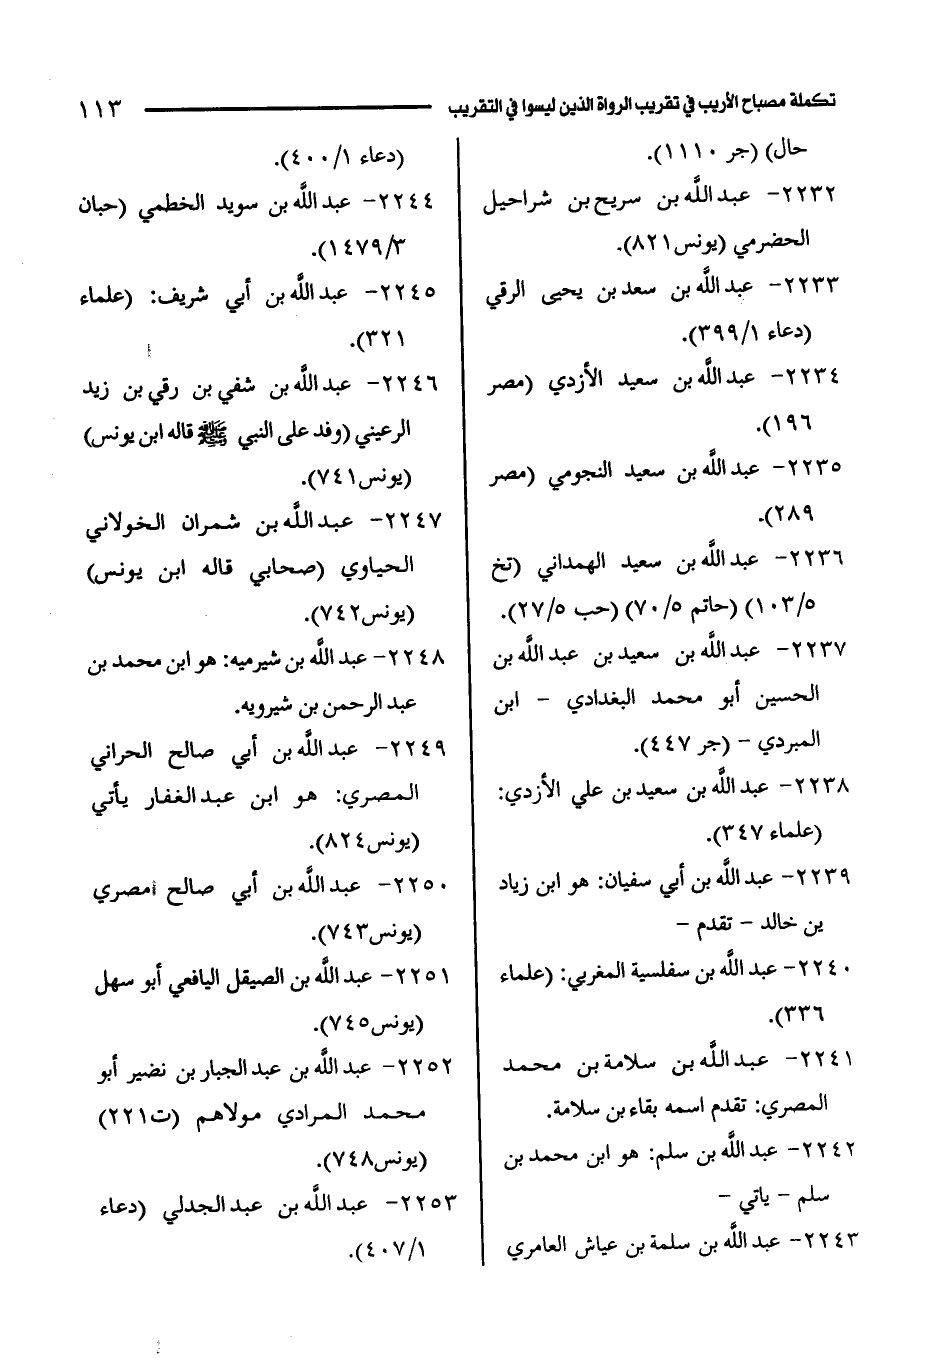 تكملة مصباح الأريب في تقريب الرواة الذين ليسوا في التقريب ١١٣
حال) (جر ١١١٠).
٢٢٣٢- عبد الله بن سريح بن شراحيل
الحضرمي (يونس٨٢١).
٢٢٣٣- عبد الله بن سعد بن يحيى الرقي
(دعاء ٣٩٩/١).
٢٢٣٤- عبد الله بن سعيد الأزدي (مصر
١٩٦).
٢٢٣٥- عبد الله بن سعيد النجومي (مصر
٢٨٩).
٢٢٣٦- عبد الله بن سعيد الهمداني (تخ
١٠٣/٥) (حاتم ٧٠/٥) (حب ٢٧/٥).
٢٢٣٧- عبد الله بن سعيد بن عبد الله بن
الحسين أبو محمد البغدادي - ابن
المبردي - (جر ٤٤٧).
٢٢٣٨- عبد الله بن سعيد بن علي الأزدي:
(علماء ٣٤٧).
٢٢٣٩- عبد الله بن أبي سفيان: هو ابن زياد
بن خالد - تقدم -
٢٢٤٠- عبد الله بن سفلسية المغربي: (علماء
٣٣٦).
٢٢٤١- عبد الله بن سلامة بن محمد
المصري: تقدم اسمه بقاء بن سلامة.
٢٢٤٢- عبد الله بن سلم: هو ابن محمد بن
سلم - ياتي -
٢٢٤٣- عبد الله بن سلمة بن عياش العامري
(دعاء ٤٠٠/١).
٢٢٤٤- عبد الله بن سويد الخطمي (حبان
١٤٧٩/٣).
٢٢٤٥- عبد الله بن أبي شريف: (علماء
٣٢١).
٢٢٤٦- عبد الله بن شفي بن رقي بن زيد
الرعيني (وفد على النبي ﷺ قاله ابن يونس)
(يونس٧٤١).
٢٢٤٧- عبد الله بن شمران الخولاني
الحياوي (صحابي قاله ابن يونس)
(يونس٧٤٢).
٢٢٤٨- عبد الله بن شيرميه: هو ابن محمد بن
عبد الرحمن بن شيرويه.
٢٢٤٩- عبد الله بن أبي صالح الحراني
المصري: هو ابن عبد الغفار يأتي
(يونس٨٢٤).
٢٢٥٠- عبد الله بن أبي صالح امصري
(يونس٧٤٣).
٢٢٥١- عبد الله بن الصيقل اليافعي أبو سهل
(يونس٧٤٥).
٢٢٥٢- عبد الله بن عبد الجبار بن نضير أبو
محمد المرادي مولاهم (ت٢٢١)
(يونس٧٤٨).
٢٢٥٣- عبد الله بن عبد الجدلي (دعاء
٤٠٧/١).